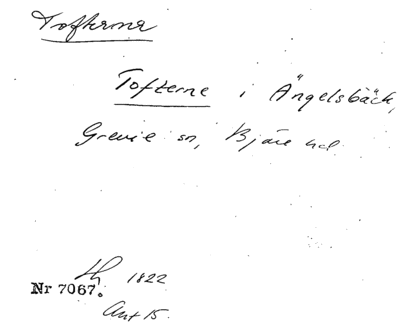 Tofterna
Tofterne i Ängelsbäck,
Grevie sn, Bjäre hd.
Lh 1822
Nr 7067.
Akt 15.